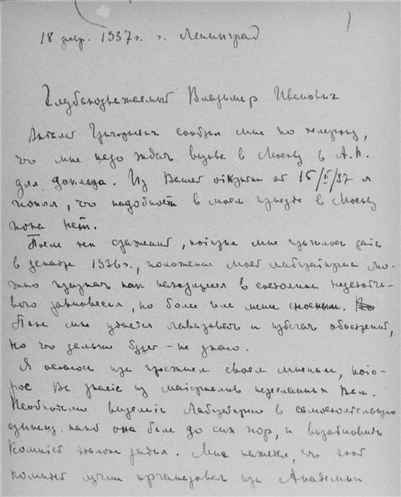 18 февр. 1937 г. г. Ленинград
Глубокоуважаемый Владимир Иванович
Виталий Григорьевич сообщил мне по телефону,
что мне надо ждать вызова в Москву в А.Н.
для доклада. Из Вашей открытки от 15/II/37 я
понял, что надобности в моем приезде в Москву
пока нет.
После тех сражений, которые мне пришлось дать
в декабре 1936 г., положение моей лаборатории мо-
жно признать как находящееся в состоянии неустойчи-
вого равновесия, но более или менее сносным.
Пока мне удается лавировать и избегать обострений,
но что дальше будет - не знаю.
Я остаюсь при прежнем своем мнении, кото-
рое Вы знаете из материалов переданных Вам.
Необходимо выделить Лабораторию в самостоятельную
единицу, какой она была до сих пор, и
Комитет Мне кажется, что этот
комитет лучше при Академии